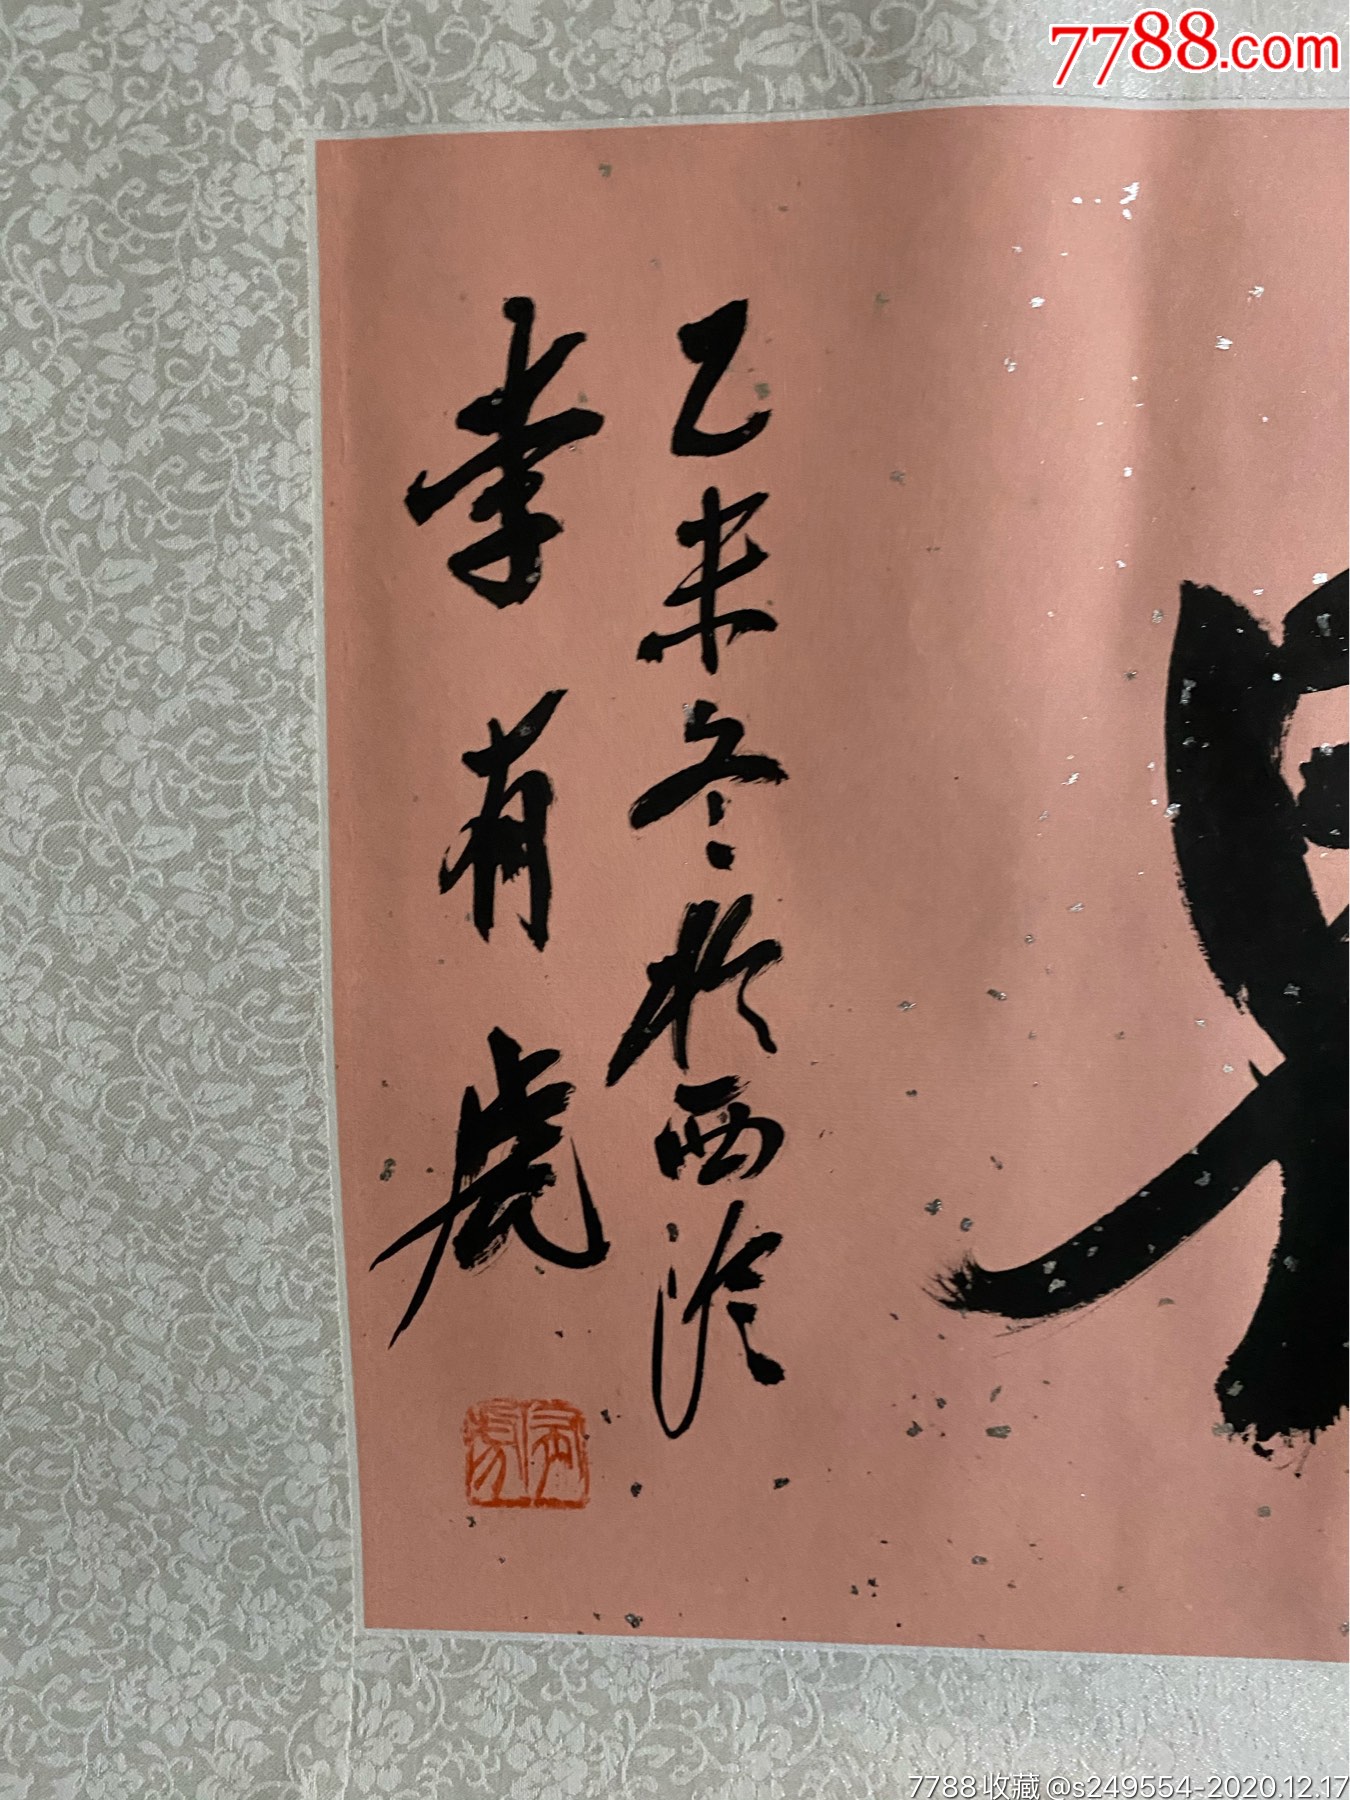 7788.com
乙未冬於西泠
李有虎
7788收藏@s249554-2020.12.17